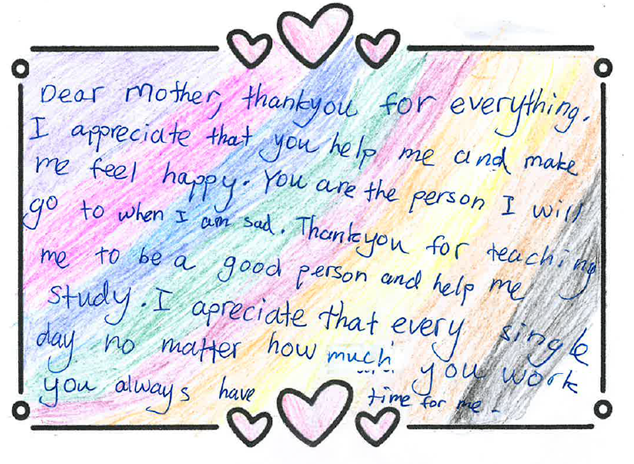 Dear mother, thankyou for everything.
I appreciate that you help me and make
me feel happy. You are the person I will
go to when I am sad. Thankyou for teaching
me to be a good person and help me
study. I apreciate that every single
day no matter how much you work
you always have time for me.